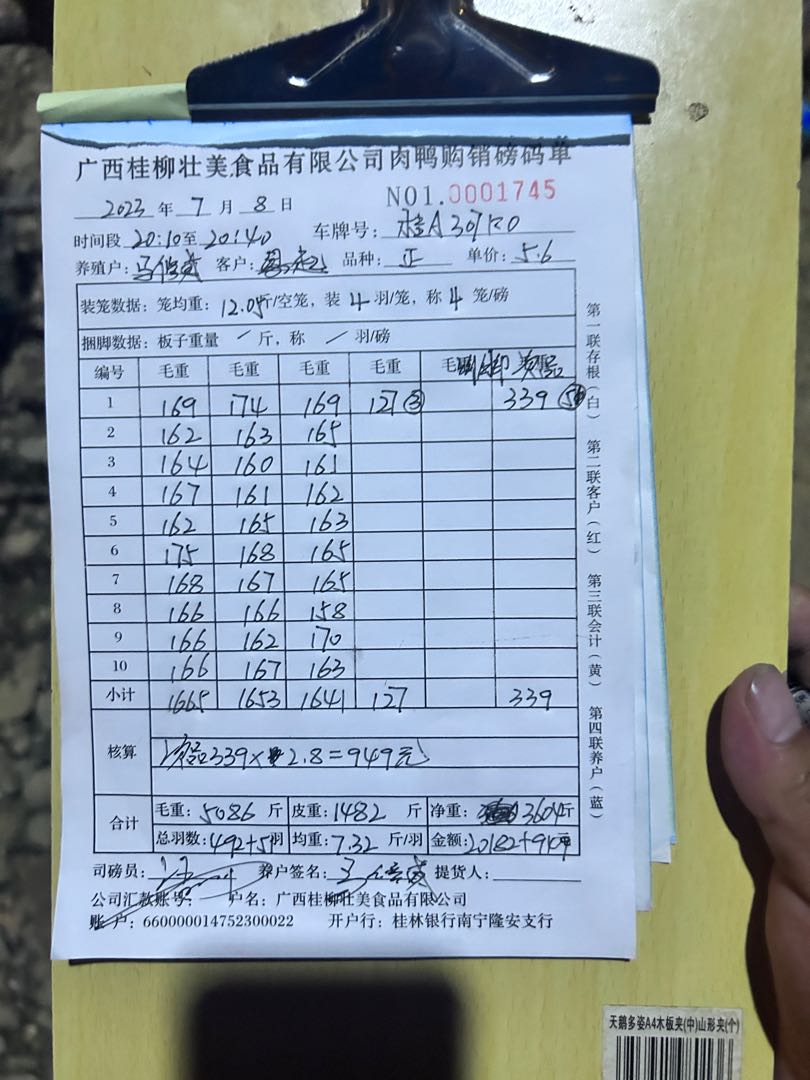 广西桂柳壮美食品有限公司肉鸭购销磅码单
NO1.0001745
2023 年 7 月 8 日
时间段 20:10至 20:40 车牌号: 桂A307K0
养殖户: 客户: 品种: 正 单价: 5.6
装笼数据: 笼均重: 12.05斤/空笼, 装 4 羽/笼, 称 4 笼/磅
捆脚数据: 板子重量 / 斤, 称 / 羽/磅
编号 毛重 毛重 毛重 毛重 毛 次品
1 169 174 169 127③ 339
2 162 163 165
3 164 160 161
4 167 161 162
5 162 165 163
6 175 168 165
7 168 167 165
8 166 166 158
9 166 162 170
10 166 167 163
小计 1665 1653 1641 127 339
核算 次品339× 2.8=949元
合计 毛重: 5086 斤 皮重: 1482 斤 净重: 3604斤
总羽数: 492+51羽 均重: 7.32 斤/羽 金额: 20182+949元
司磅员: 养户签名: 提货人:
公司汇款账号: 户名: 广西桂柳壮美食品有限公司
账 户: 660000014752300022 开户行: 桂林银行南宁隆安支行
第一联存根(白) 第二联客户(红) 第三联会计(黄) 第四联养户(蓝)
天鹅多姿A4木板夹(中)山形夹(个)